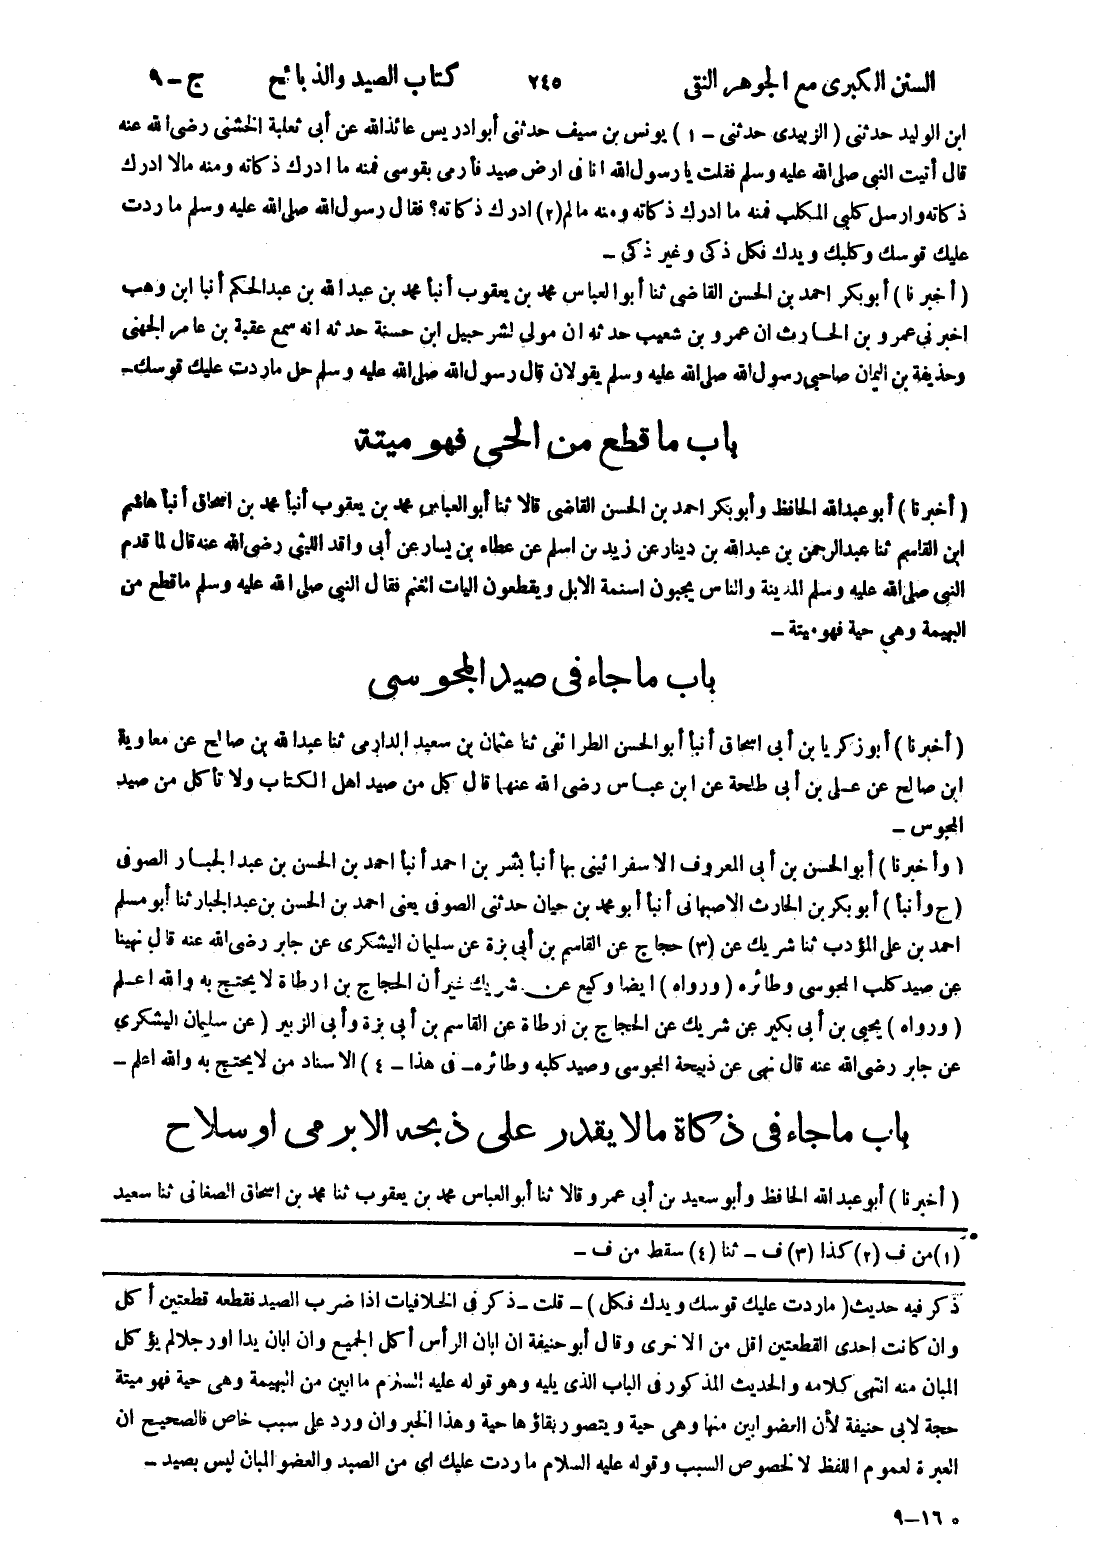 السنن الكبرى مع الجوهر النقى ٢٤٥ كتاب الصيد والذبائح ج - ٩
ابن الوليد حدثنى ( الزبيدى حدثنى - ١ ) يونس بن سيف حدثنى أبوادريس عائذالله عن أبى ثعلبة الخشنى رضى الله عنه
قال أتيت النبى صلى الله عليه وسلم فقلت يا رسول الله انا فى ارض صيد فأرمى بقوسى فمنه ما ادرك ذكاته ومنه مالا ادرك
ذكاته وارسل كلبى المكلب فمنه ما ادرك ذكاته ومنه مالم (٢) ادرك ذكاته؟ فقال رسول الله صلى الله عليه وسلم ماردت
عليك قوسك وكلبك ويدك فكل ذكى وغير ذكى -
( أخبرنا ) أبوبكر احمد بن الحسن القاضى ثنا أبوالعباس محمد بن يعقوب أنبأ محمد بن عبدالله بن عبدالحكم أنبا ابن وهب
اخبرنى عمرو بن الحارث ان عمرو بن شعيب حدثه ان مولى لشرحبيل ابن حسنة حدثه انه سمع عقبة بن عامر الجهنى
وحذيفة بن اليمان صاحبى رسول الله صلى الله عليه وسلم يقولان قال رسول الله صلى الله عليه وسلم حل ماردت عليك قوسك -
باب ماقطع من الحى فهو ميتة
( أخبرنا ) أبو عبدالله الحافظ وأبوبكر احمد بن الحسن القاضى قالا ثنا أبوالعباس محمد بن يعقوب أنبأ محمد بن اسحاق أنبأ هاشم
ابن القاسم ثنا عبدالرحمن بن عبدالله بن دينار عن زيد بن اسلم عن عطاء بن يسار عن أبى واقد الليثى رضى الله عنه قال لما قدم
النبى صلى الله عليه وسلم المدينة والناس يجبون اسنمة الابل ويقطعون اليات الغنم فقال النبى صلى الله عليه وسلم ماقطع من
البهيمة وهى حية فهو ميتة -
باب ماجاء فى صيد المجوسى
( أخبرنا ) أبو زكريا بن أبى اسحاق أنبأ أبوالحسن الطرائفى ثنا عثمان بن سعيد الدارمى ثنا عبدالله بن صالح عن معاوية
ابن صالح عن على بن أبى طلحة عن ابن عباس رضى الله عنهما قال كل من صيد اهل الكتاب ولا تأكل من صيد
المجوس -
( وأخبرنا ) أبوالحسن بن أبى المعروف الاسفرائينى بها أنبأ بشر بن احمد أنبأ احمد بن الحسن بن عبدالجبار الصوفى
( ح وأنبأ ) أبوبكر بن الحارث الاصبهانى أنبأ أبومحمد بن حيان حدثنى الصوفى يعنى احمد بن الحسن بن عبدالجبار ثنا أبومسلم
احمد بن على المؤدب ثنا شريك عن (٣) حجاج عن القاسم بن أبى بزة عن سليمان اليشكرى عن جابر رضى الله عنه قال نهينا
عن صيد كلب المجوسى وطائره ( ورواه ) ايضا وكيع عن شريك غير أن الحجاج بن ارطاة لا يحتج به والله اعلم
( ورواه ) يحيى بن أبى بكير عن شريك عن الحجاج بن ارطاة عن القاسم بن أبى بزة وأبى الزبير ( عن سليمان اليشكرى
عن جابر رضى الله عنه قال نهى عن ذبيحة المجوسى وصيد كلبه وطائره - فى هذا - ٤ ) الاسناد من لا يحتج به والله اعلم -
باب ماجاء فى ذكاة مالا يقدر على ذبحه الا برمى او سلاح
( أخبرنا ) أبو عبدالله الحافظ وأبوسعيد بن أبى عمرو قالا ثنا أبوالعباس محمد بن يعقوب ثنا محمد بن اسحاق الصغانى ثنا سعيد
(١) من ف (٢) كذا (٣) ف - ثنا (٤) سقط من ف -
ذكر فيه حديث ( ماردت عليك قوسك ويدك فكل ) - قلت - ذكر فى الخلافيات اذا ضرب الصيد فقطعه قطعتين أكل
وان كانت احدى القطعتين اقل من الاخرى وقال أبوحنيفة ان ابان الرأس أكل الجميع وان ابان يدا اورجلالم يؤكل
المبان منه انتهى كلامه والحديث المذكور فى الباب الذى يليه وهو قوله عليه السلام ما ابين من البهيمة وهى حية فهو ميتة
حجة لابى حنيفة لأن العضو ابين منها وهى حية ويتصور بقاؤها حية وهذا الخبر وان ورد على سبب خاص فالصحيح ان
العبرة لعموم اللفظ لا لخصوص السبب وقوله عليه السلام ماردت عليك اى من الصيد والعضو المبان ليس بصيد -
٩-١٦٠